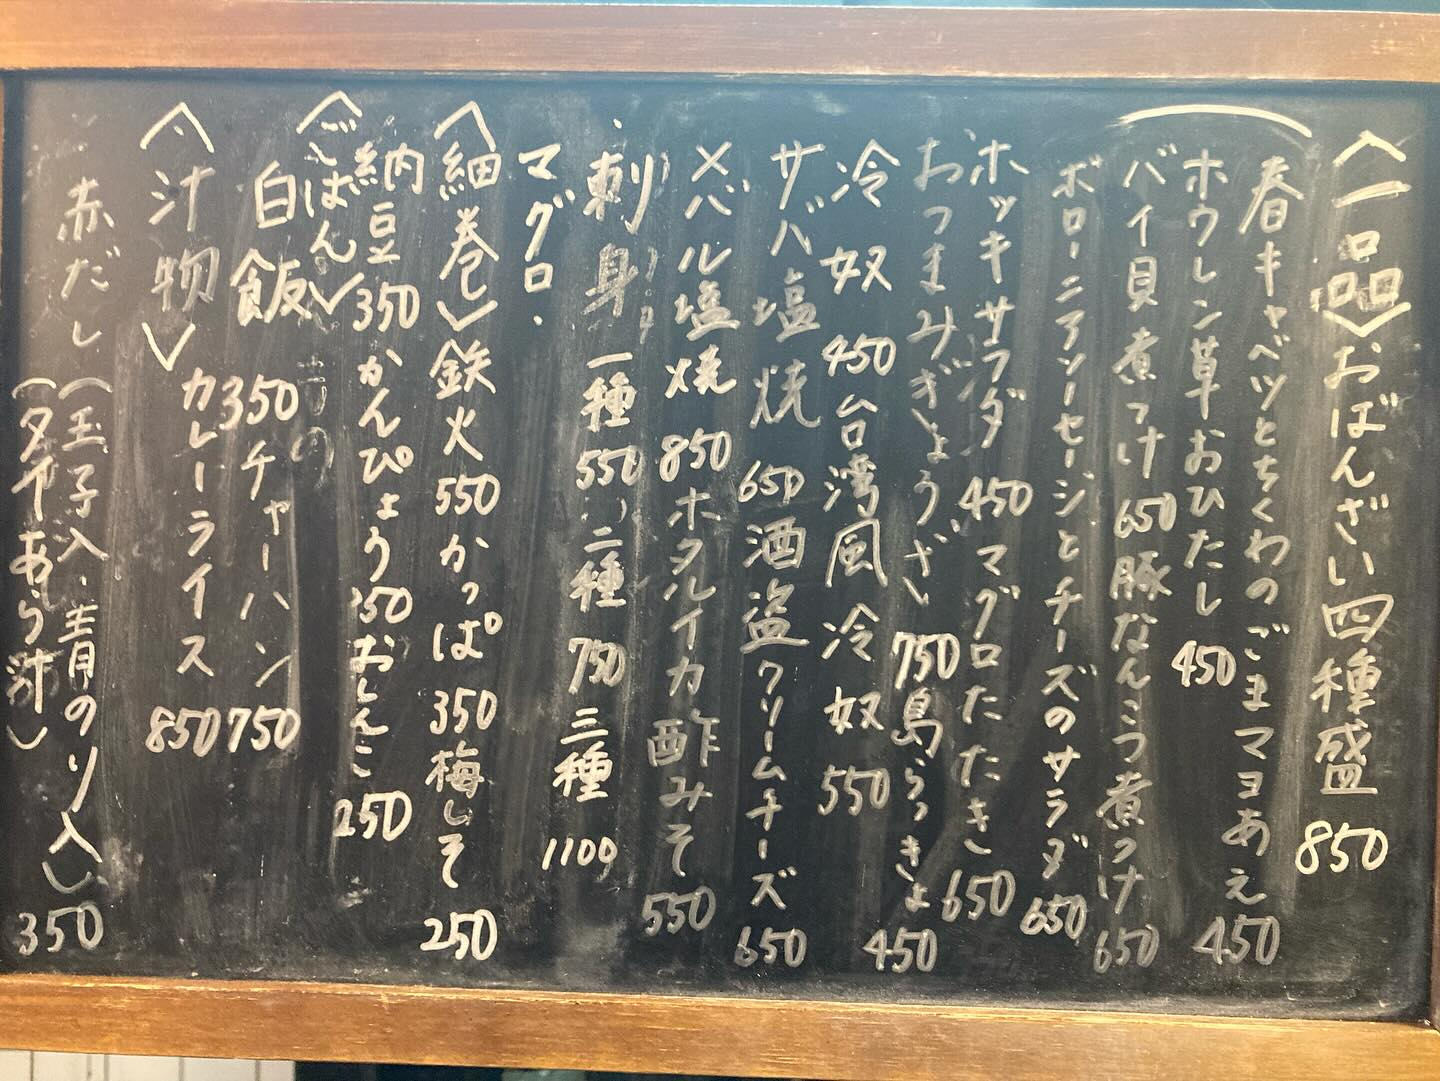 〈一品〉おばんざい四種盛 850
春キャベツとちくわのごまマヨあえ 450
ホウレン草おひたし 450
バイ貝煮つけ 650 豚なんこつ煮つけ 650
ボローニアソーセージとチーズのサラダ 650
ホッキサラダ 450 マグロたたき 650
おつまみぎょうざ 750 島らっきょ 450
冷奴 450 台湾風冷奴 550
サバ塩焼 650 酒盗クリームチーズ 650
メバル塩焼 850 ホタルイカ酢みそ 550
刺身 一種 550 二種 750 三種 1100
マグロ・
〈細巻〉鉄火 550 かっぱ 350 梅しそ 250
納豆 350 かんぴょう 350 おしんこ 250
〈ごはん〉
白飯 350 チャーハン 750
カレーライス 850
〈汁物〉
赤だし(玉子入・青のり入) 350
(タイあら汁)